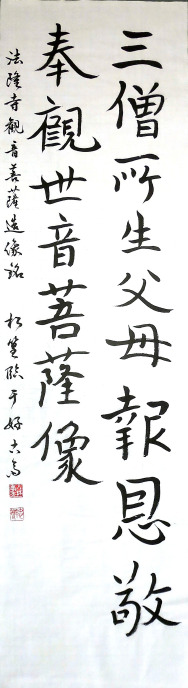 三僧所生父母報恩敬
奉觀世音菩薩像
法隆寺觀音菩薩造像銘 臨于好古